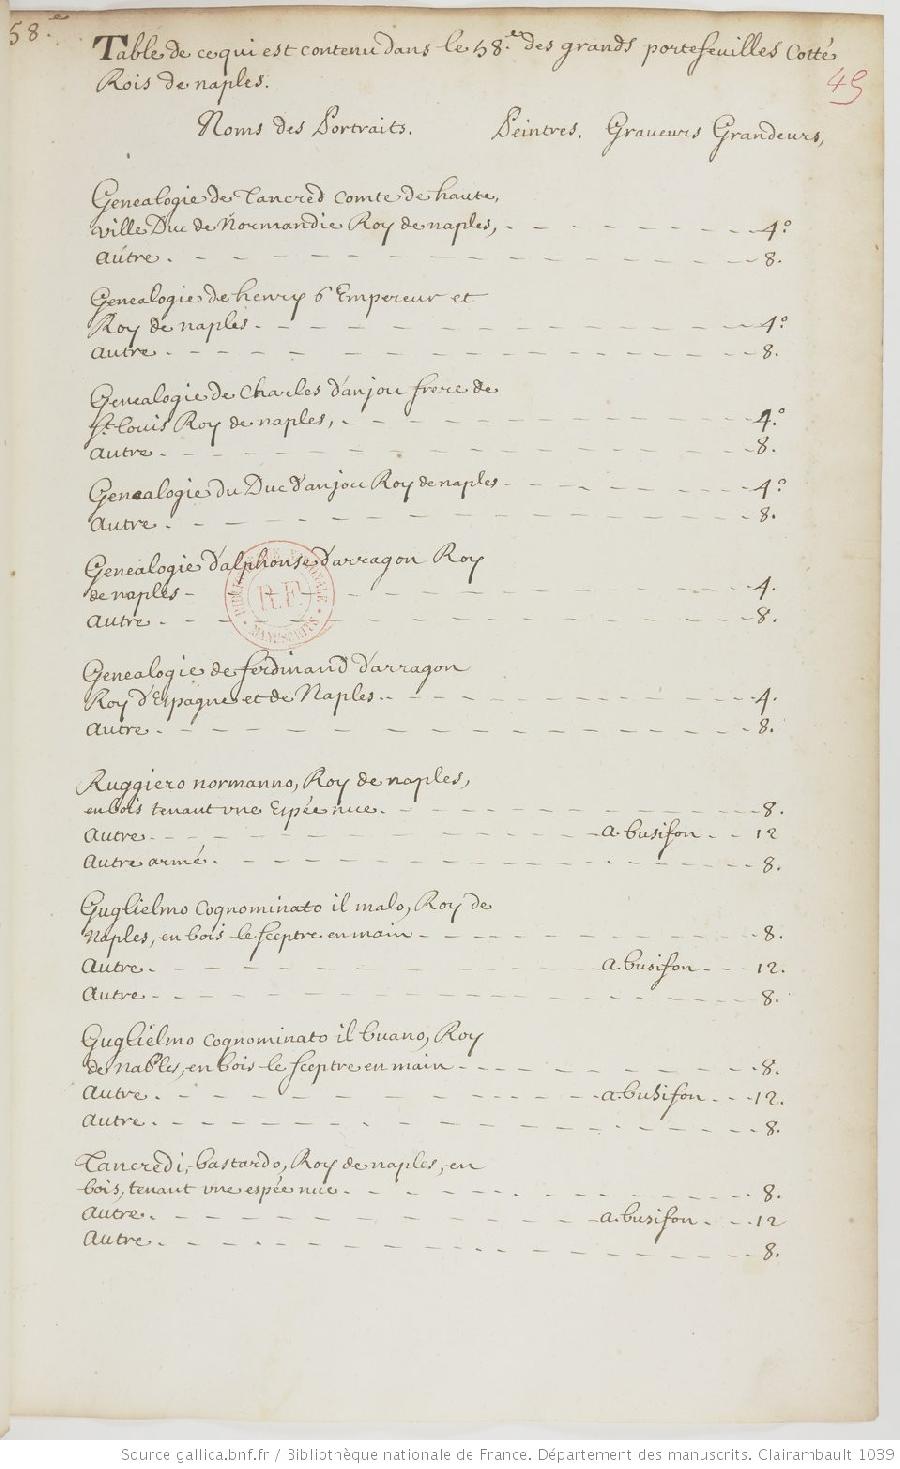 58.e
Table de ce qui est contenu dans le 58.e des grands portefeuilles Cotté
Rois de naples.
49
Noms des Portraits. Peintres. Graueurs Grandeurs,
Genealogie de Tancred Comte de haute,
ville Duc de Normandie Roy de naples, 4.o
autre. 8.
Genealogie de henry 6 Empereur et
Roy de naples. 4.o
autre. 8.
Genealogie de Charles d'anjou frere de
St. Louis Roy de naples, 4.o
autre. 8.
Genealogie du Duc d'anjou Roy de naples 4.o
autre. 8.
Genealogie d'alphonse d'arragon Roy
de naples 4.
autre. 8.
BIBLIOTHÈQUE NATIONALE
R.F.
MANUSCRITS
Genealogie de ferdinand d'arragon
Roy d'Espagne et de Naples. 4.
autre. 8.
Ruggiero normanno, Roy de naples,
en bois tenant vne Espée nue. 8.
autre. a. busifon 12
autre armé. 8.
Guglielmo cognominato il malo, Roy de
Naples, en bois le sceptre en main 8.
autre. a. busifon 12.
autre. 8.
Guglielmo cognominato il buano, Roy
de Nables, en bois le sceptre en main 8.
autre. a. busifon 12.
autre. 8.
Tancredi, bastardo, Roy de naples, en
bois, tenant vne espée nue. 8.
autre. a. busifon 12
autre. 8.
Source gallica.bnf.fr / Bibliothèque nationale de France. Département des manuscrits. Clairambault 1039